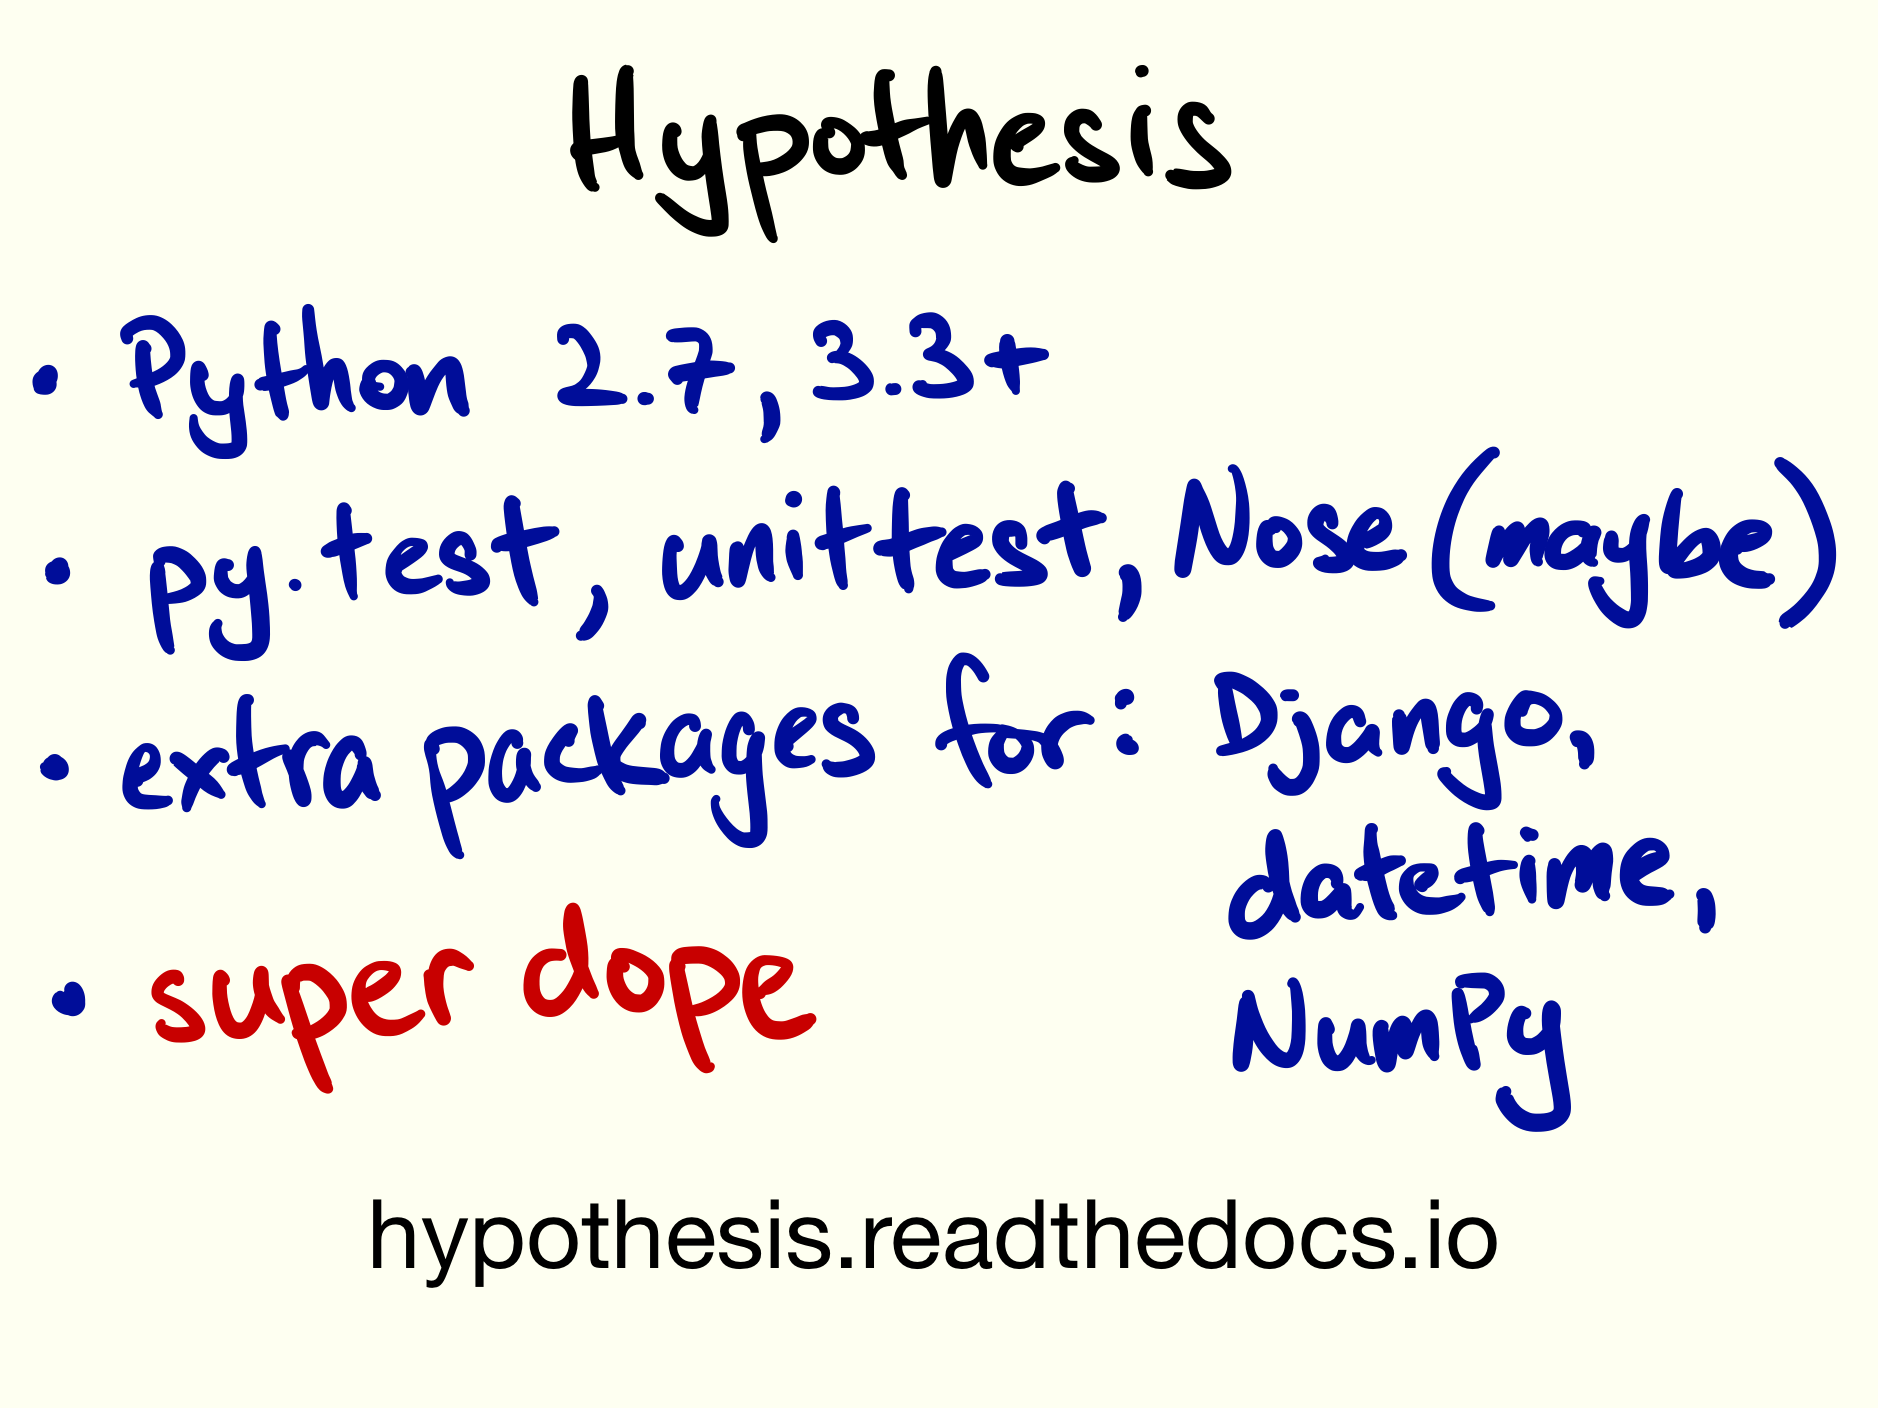 Hypothesis
• Python 2.7, 3.3+
• py.test, unittest, Nose (maybe)
• extra packages for: Django,
datetime,
NumPy
• super dope
hypothesis.readthedocs.io